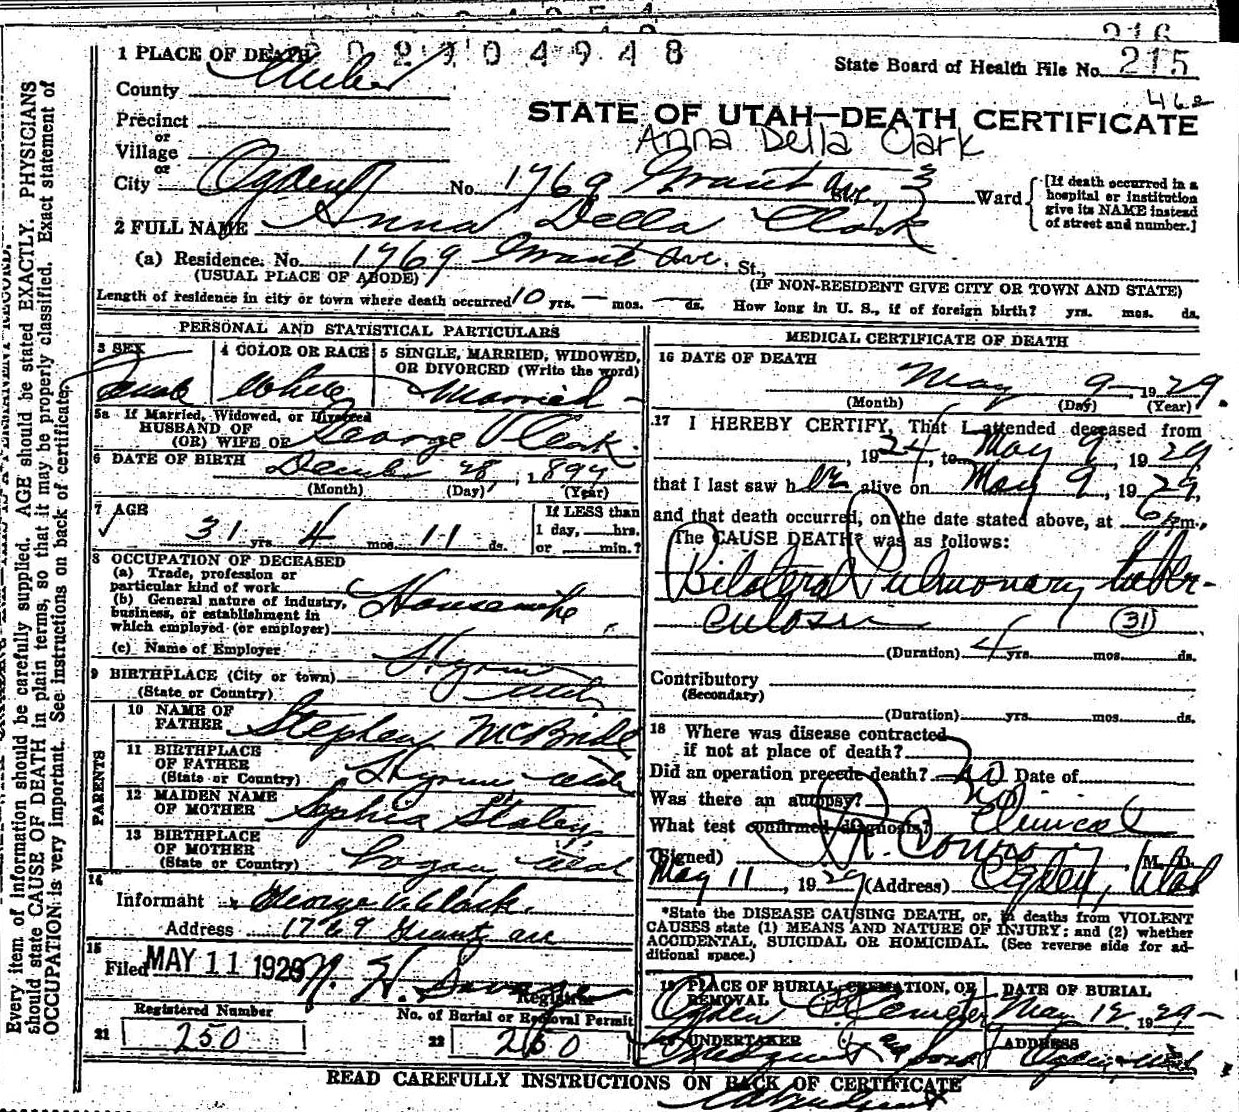 2904948
216
1 PLACE OF DEATH
State Board of Health File No. 215
County Weber
460
STATE OF UTAH—DEATH CERTIFICATE
Precinct
or
Anna Della Clark
Village
or
City Ogden No. 1769 Grant Ave. St., 3 Ward
[If death occurred in a hospital or institution give its NAME instead of street and number.]
2 FULL NAME Anna Della Clark
(a) Residence. No. 1769 Grant Ave. St.,
(USUAL PLACE OF ABODE) (IF NON-RESIDENT GIVE CITY OR TOWN AND STATE)
Length of residence in city or town where death occurred 10 yrs. — mos. — ds. How long in U. S., if of foreign birth? yrs. mos. ds.
PERSONAL AND STATISTICAL PARTICULARS
3 SEX
Female
4 COLOR OR RACE
White
5 SINGLE, MARRIED, WIDOWED, OR DIVORCED (Write the word)
Married
5a If Married, Widowed, or Divorced
HUSBAND OF
(OR) WIFE OF George Clark
6 DATE OF BIRTH 28, 1897
(Month) (Day) (Year)
7 AGE
31 yrs. 4 mos. 11 ds.
If LESS than
1 day, hrs.
or min.?
8 OCCUPATION OF DECEASED
(a) Trade, profession or
particular kind of work
(b) General nature of industry,
business, or establishment in
which employed (or employer)
Housewife
(c) Name of Employer
9 BIRTHPLACE (City or town) Hyrum
(State or Country) Utah
PARENTS
10 NAME OF
FATHER Stephen McBride
11 BIRTHPLACE
OF FATHER
(State or Country) Hyrum Utah
12 MAIDEN NAME
OF MOTHER Sophia
13 BIRTHPLACE
OF MOTHER
(State or Country) Logan, Utah
14
Informant George Clark
Address 1769 Grant ave
15
Filed MAY 11 1929
Registrar
Registered Number
21 250
No. of Burial or Removal Permit
22 250
MEDICAL CERTIFICATE OF DEATH
16 DATE OF DEATH
May 9 1929
(Month) (Day) (Year)
17 I HEREBY CERTIFY, That I attended deceased from
, 1924, to May 9, 1929
that I last saw her alive on May 9, 1929,
and that death occurred, on the date stated above, at 6 p.m.
The CAUSE DEATH* was as follows:
Bilateral Pulmonary tuber-
culosis (31)
(Duration) 4 yrs. mos. ds.
Contributory
(Secondary)
(Duration) yrs. mos. ds.
18 Where was disease contracted
if not at place of death?
Did an operation precede death? no Date of
Was there an autopsy? no
What test confirmed diagnosis? Clinical
(Signed) M. D.
May 11, 1929 (Address) Ogden, Utah
*State the DISEASE CAUSING DEATH, or, in deaths from VIOLENT
CAUSES state (1) MEANS AND NATURE OF INJURY; and (2) whether
ACCIDENTAL, SUICIDAL OR HOMICIDAL. (See reverse side for ad-
ditional space.)
19 PLACE OF BURIAL, CREMATION, OR REMOVAL
Ogden Cemetery
DATE OF BURIAL
May 12, 1929
20 UNDERTAKER
ADDRESS
Ogden Utah
READ CAREFULLY INSTRUCTIONS ON BACK OF CERTIFICATE
Every item of information should be carefully supplied. AGE should be stated EXACTLY. PHYSICIANS
should state CAUSE OF DEATH in plain terms, so that it may be properly classified. Exact statement of
OCCUPATION is very important. See instructions on back of certificate.